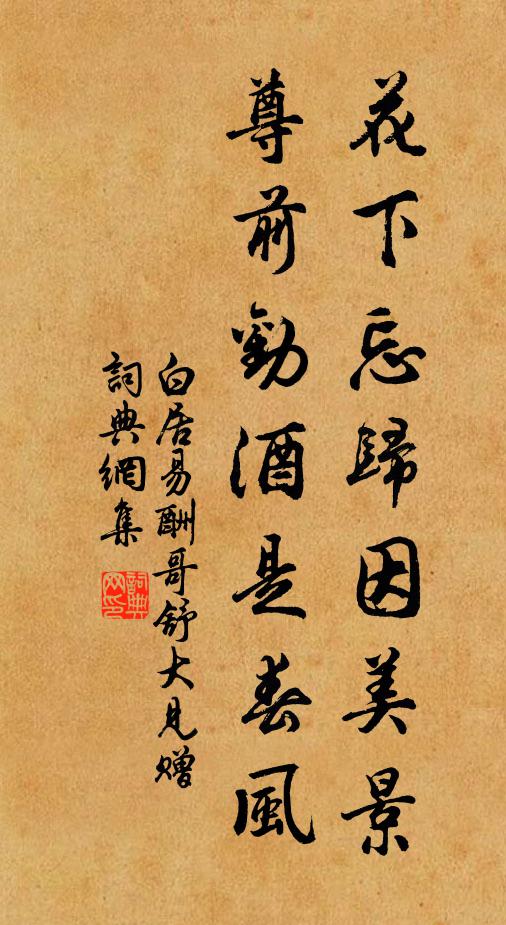 花下忘歸因美景
尊前勸酒是春風
白居易酬哥舒大見贈
詞典網集
詞典
网印